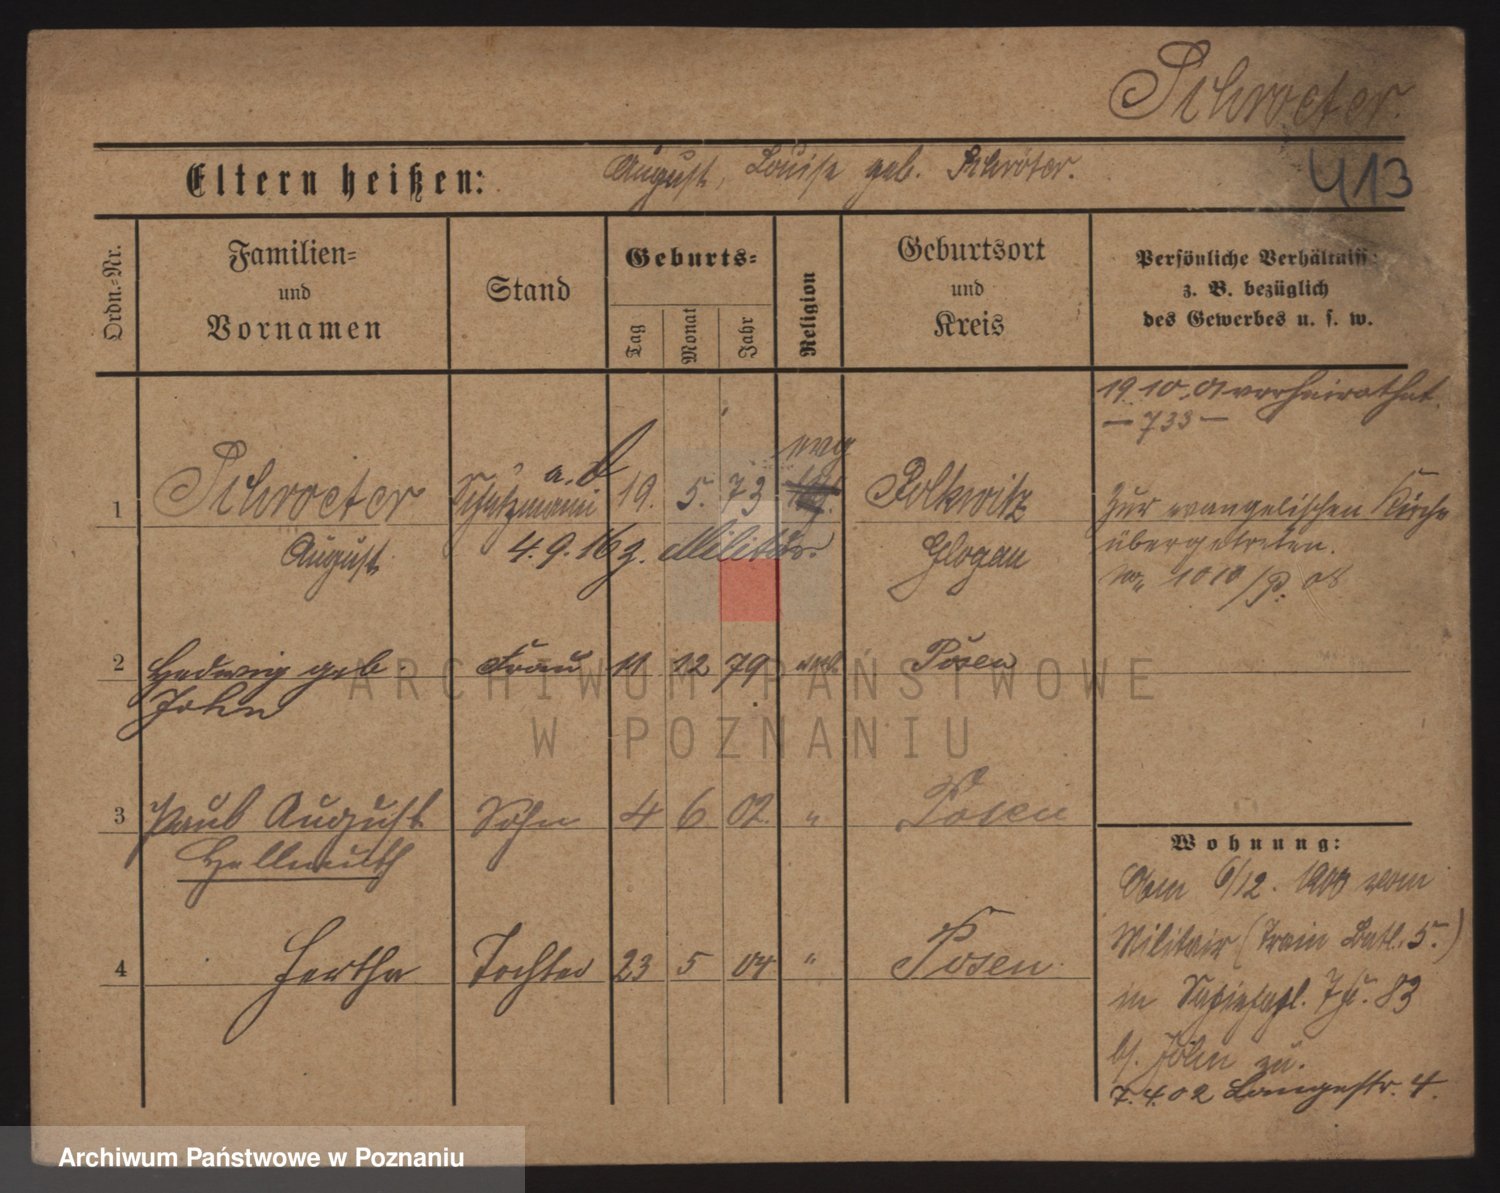 Schroeter
Eltern heißen: August, Louise geb. Schröter.
413
Ordn.-Nr.
Familien-
und
Vornamen
Stand
Geburts-
Tag
Monat
Jahr
Religion
Geburtsort
und
Kreis
Persönliche Verhältniss
z. B. bezüglich
des Gewerbes u. s. w.
19.10.01 verheirathet.
— 733 —
1 Schroeter Schutzmann a. D 19. 5. 73 evg Polkwitz
August 4.9.16 z. Militär. Glogau
Zur evangelischen Kirche
übergetreten.
1010/P. 08
2 Hedwig geb Frau 11 12 79 evd. Posen
John
3 Paul August Sohn 4 6 02 " Posen
Hellmuth
4 Hertha Tochter 23 5 04 " Posen
Wohnung:
6/12. 1900 vom
Militair (Train Batl. 5.)
in 83
b/. John zu.
7.4.02 Langestr. 4.
ARCHIWUM PAŃSTWOWE
W POZNANIU
Archiwum Państwowe w Poznaniu